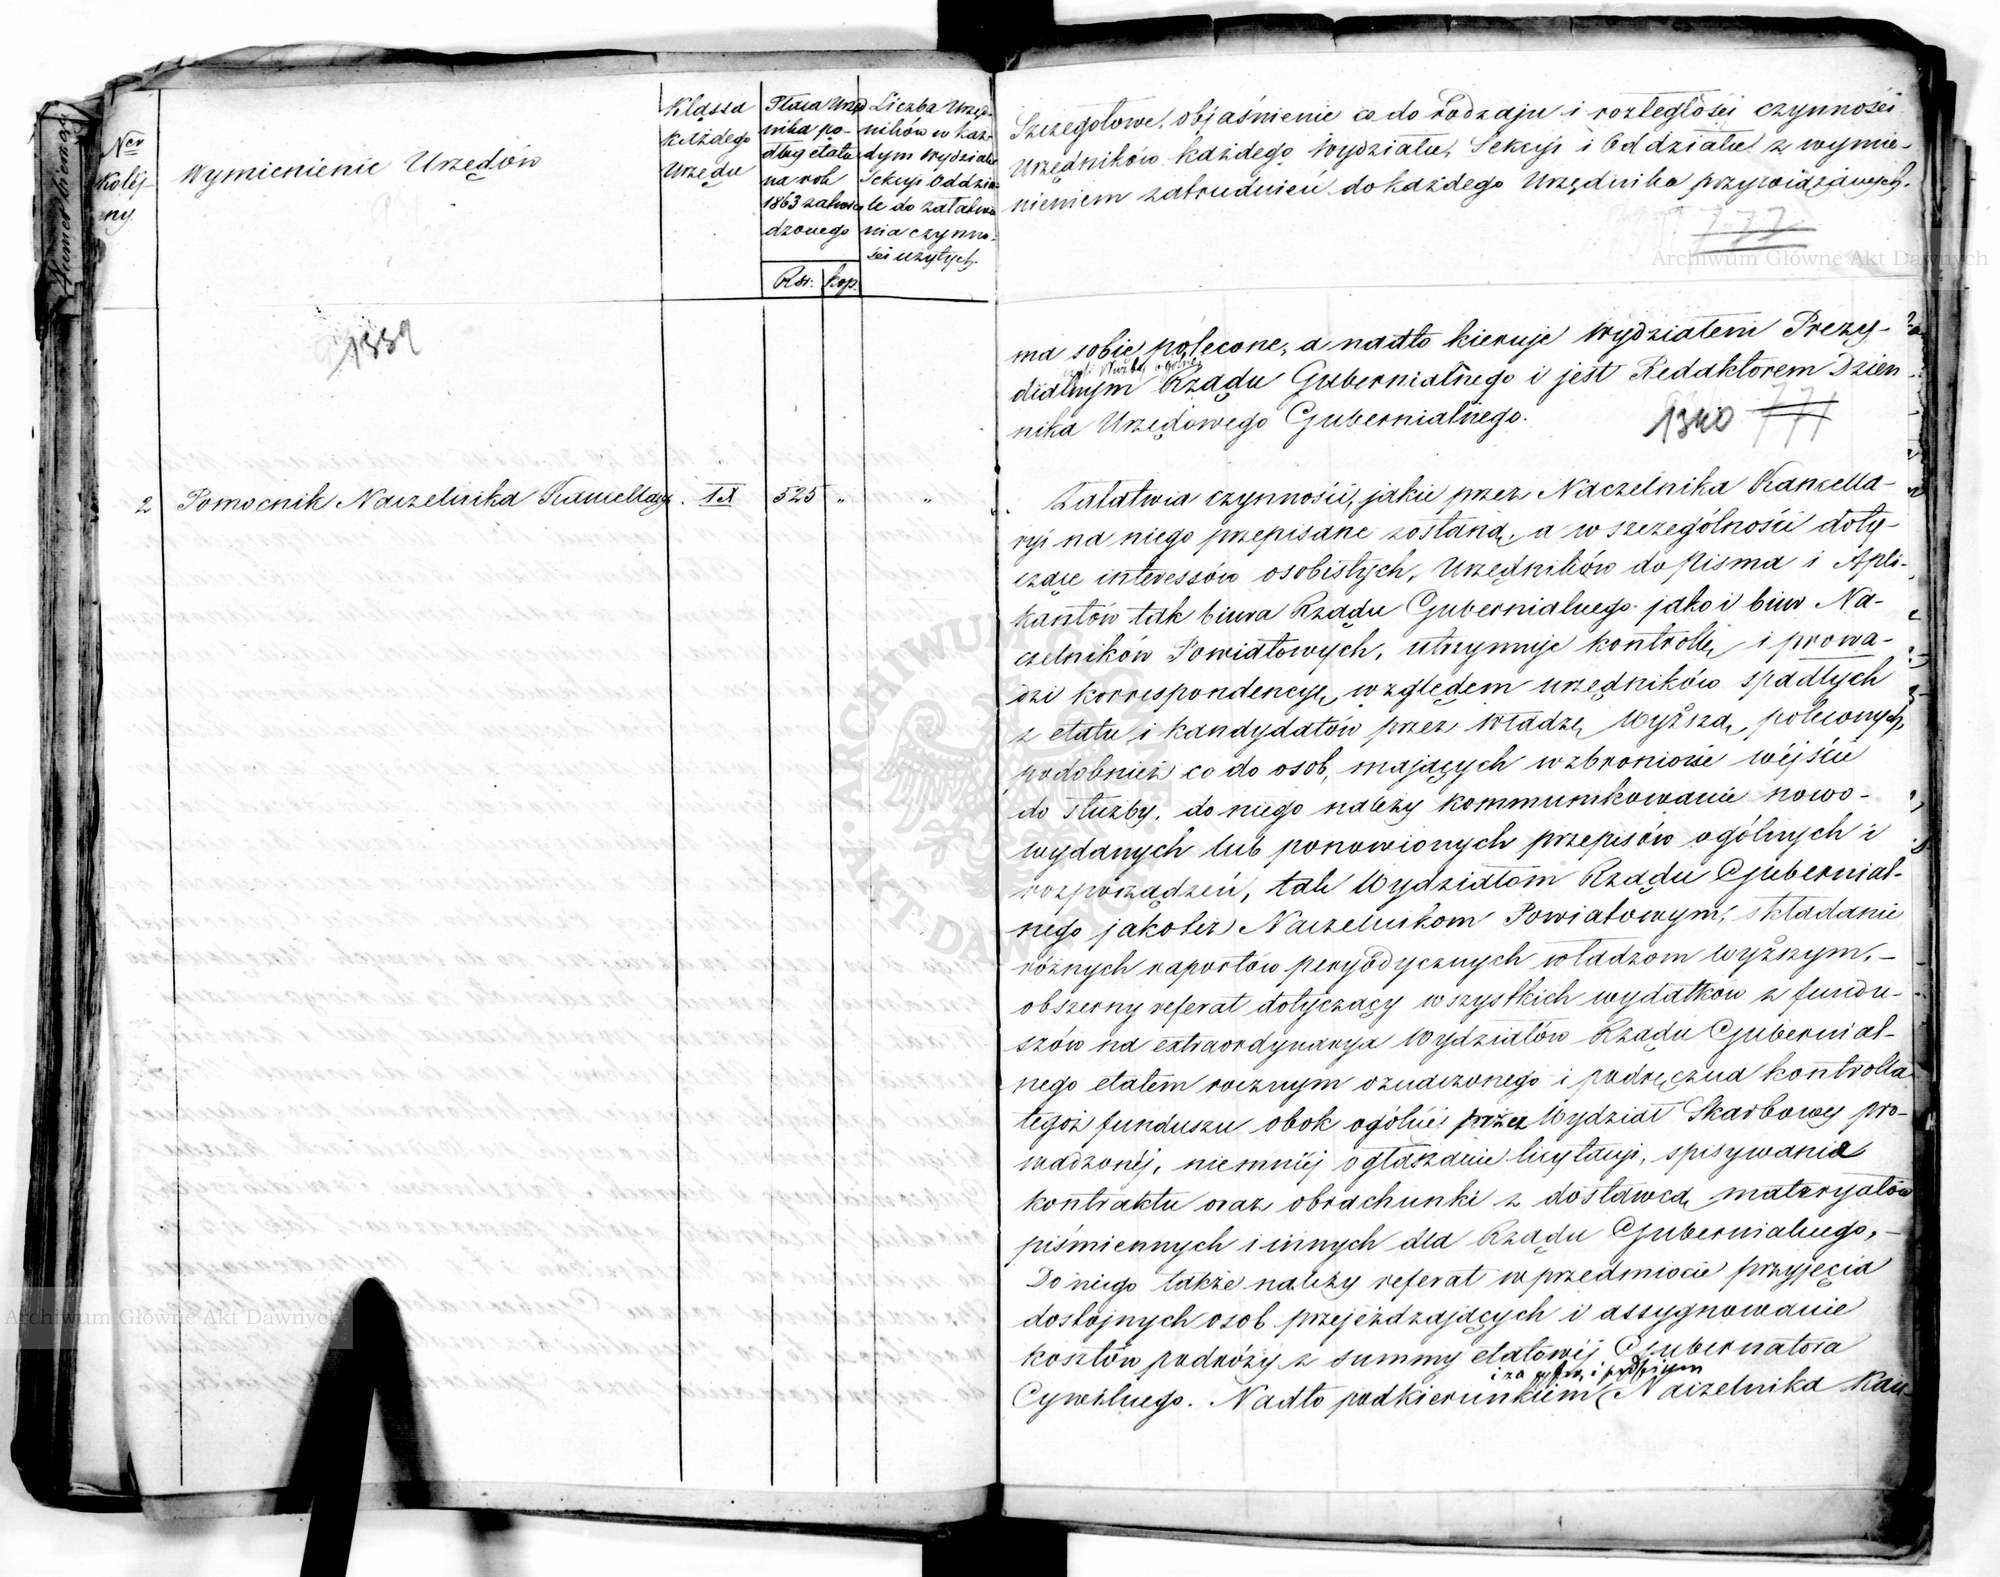 Ner
kolej-
ny
Wymienienie Urzędów
Klassa
każdego
Urzędu
Płaca Urzę
nika po-
dług etatu
na rok
1863 zatwier
dzonego
Rsr. kop.
Liczba Urzęd-
ników w każ-
dym Wydziale
Sekcyi Oddzia-
le do załatwie
nia czynno-
ści użytych.
1339
2 Pomocnik Naczelnika Kancellaryi. IX 525 „ „
Szczegółowe objaśnienie co do rodzaju i rozległości czynności
Urzędników każdego Wydziału, Sekcyi i Oddziału z wymie-
nieniem zatrudnień do każdego Urzędnika przywiązanych.
777
ma sobie polecone, a nadto kieruje Wydziałem Prezy-
dialnym Rządu Gubernialnego i jest Redaktorem Dzien
nika Urzędowego Gubernialnego.
1340 771
Załatwia czynności, jakie przez Naczelnika Kancella-
ryi na niego przepisane zostaną, a w szczególności doty-
czące interessów osobistych, Urzędników do pisma i Apli-
kantów tak biura Rządu Gubernialnego jako i biur Na-
czelników Powiatowych, utrzymuje kontrollę i prowa-
dzi korrespondencyę względem urzędników spadłych
z etatu i kandydatów przez Władzę Wyższą poleconych,
podobnież co do osob, mających wzbronione wejście
do służby, do niego należy kommunikowanie nowo-
wydanych lub ponowionych przepisów ogólnych i
rozporządzeń, tak Wydziałom Rządu Gubernial-
nego jakoteż Naczelnikom Powiatowym, składanie
różnych raportów peryodycznych władzom wyższym,-
obszerny referat dotyczący wszystkich wydatków z fundu-
szów na extraordynarya Wydziałów Rządu Gubernial-
nego etatem rocznym oznaczonego i podręczna kontrolla
tegoż funduszu obok ogólnej przez Wydział Skarbowy pro-
wadzonéj, niemniéj ogłaszanie licytacyi, spisywanie
kontraktu oraz obrachunki z dostawcą materyałów
piśmiennych i innych dla Rządu Gubernialnego,-
Do niego także należy referat w przedmiocie przyjęcia
dostojnych osob przejeżdzających i assygnowanie
kosztów podróży z summy etatowéj Gubernatora
i za i podpisem
Cywilnego. Nadto pod kierunkiem Naczelnika Kan-
Archiwum Główne Akt Dawnych
Archiwum Główne Akt Dawnych